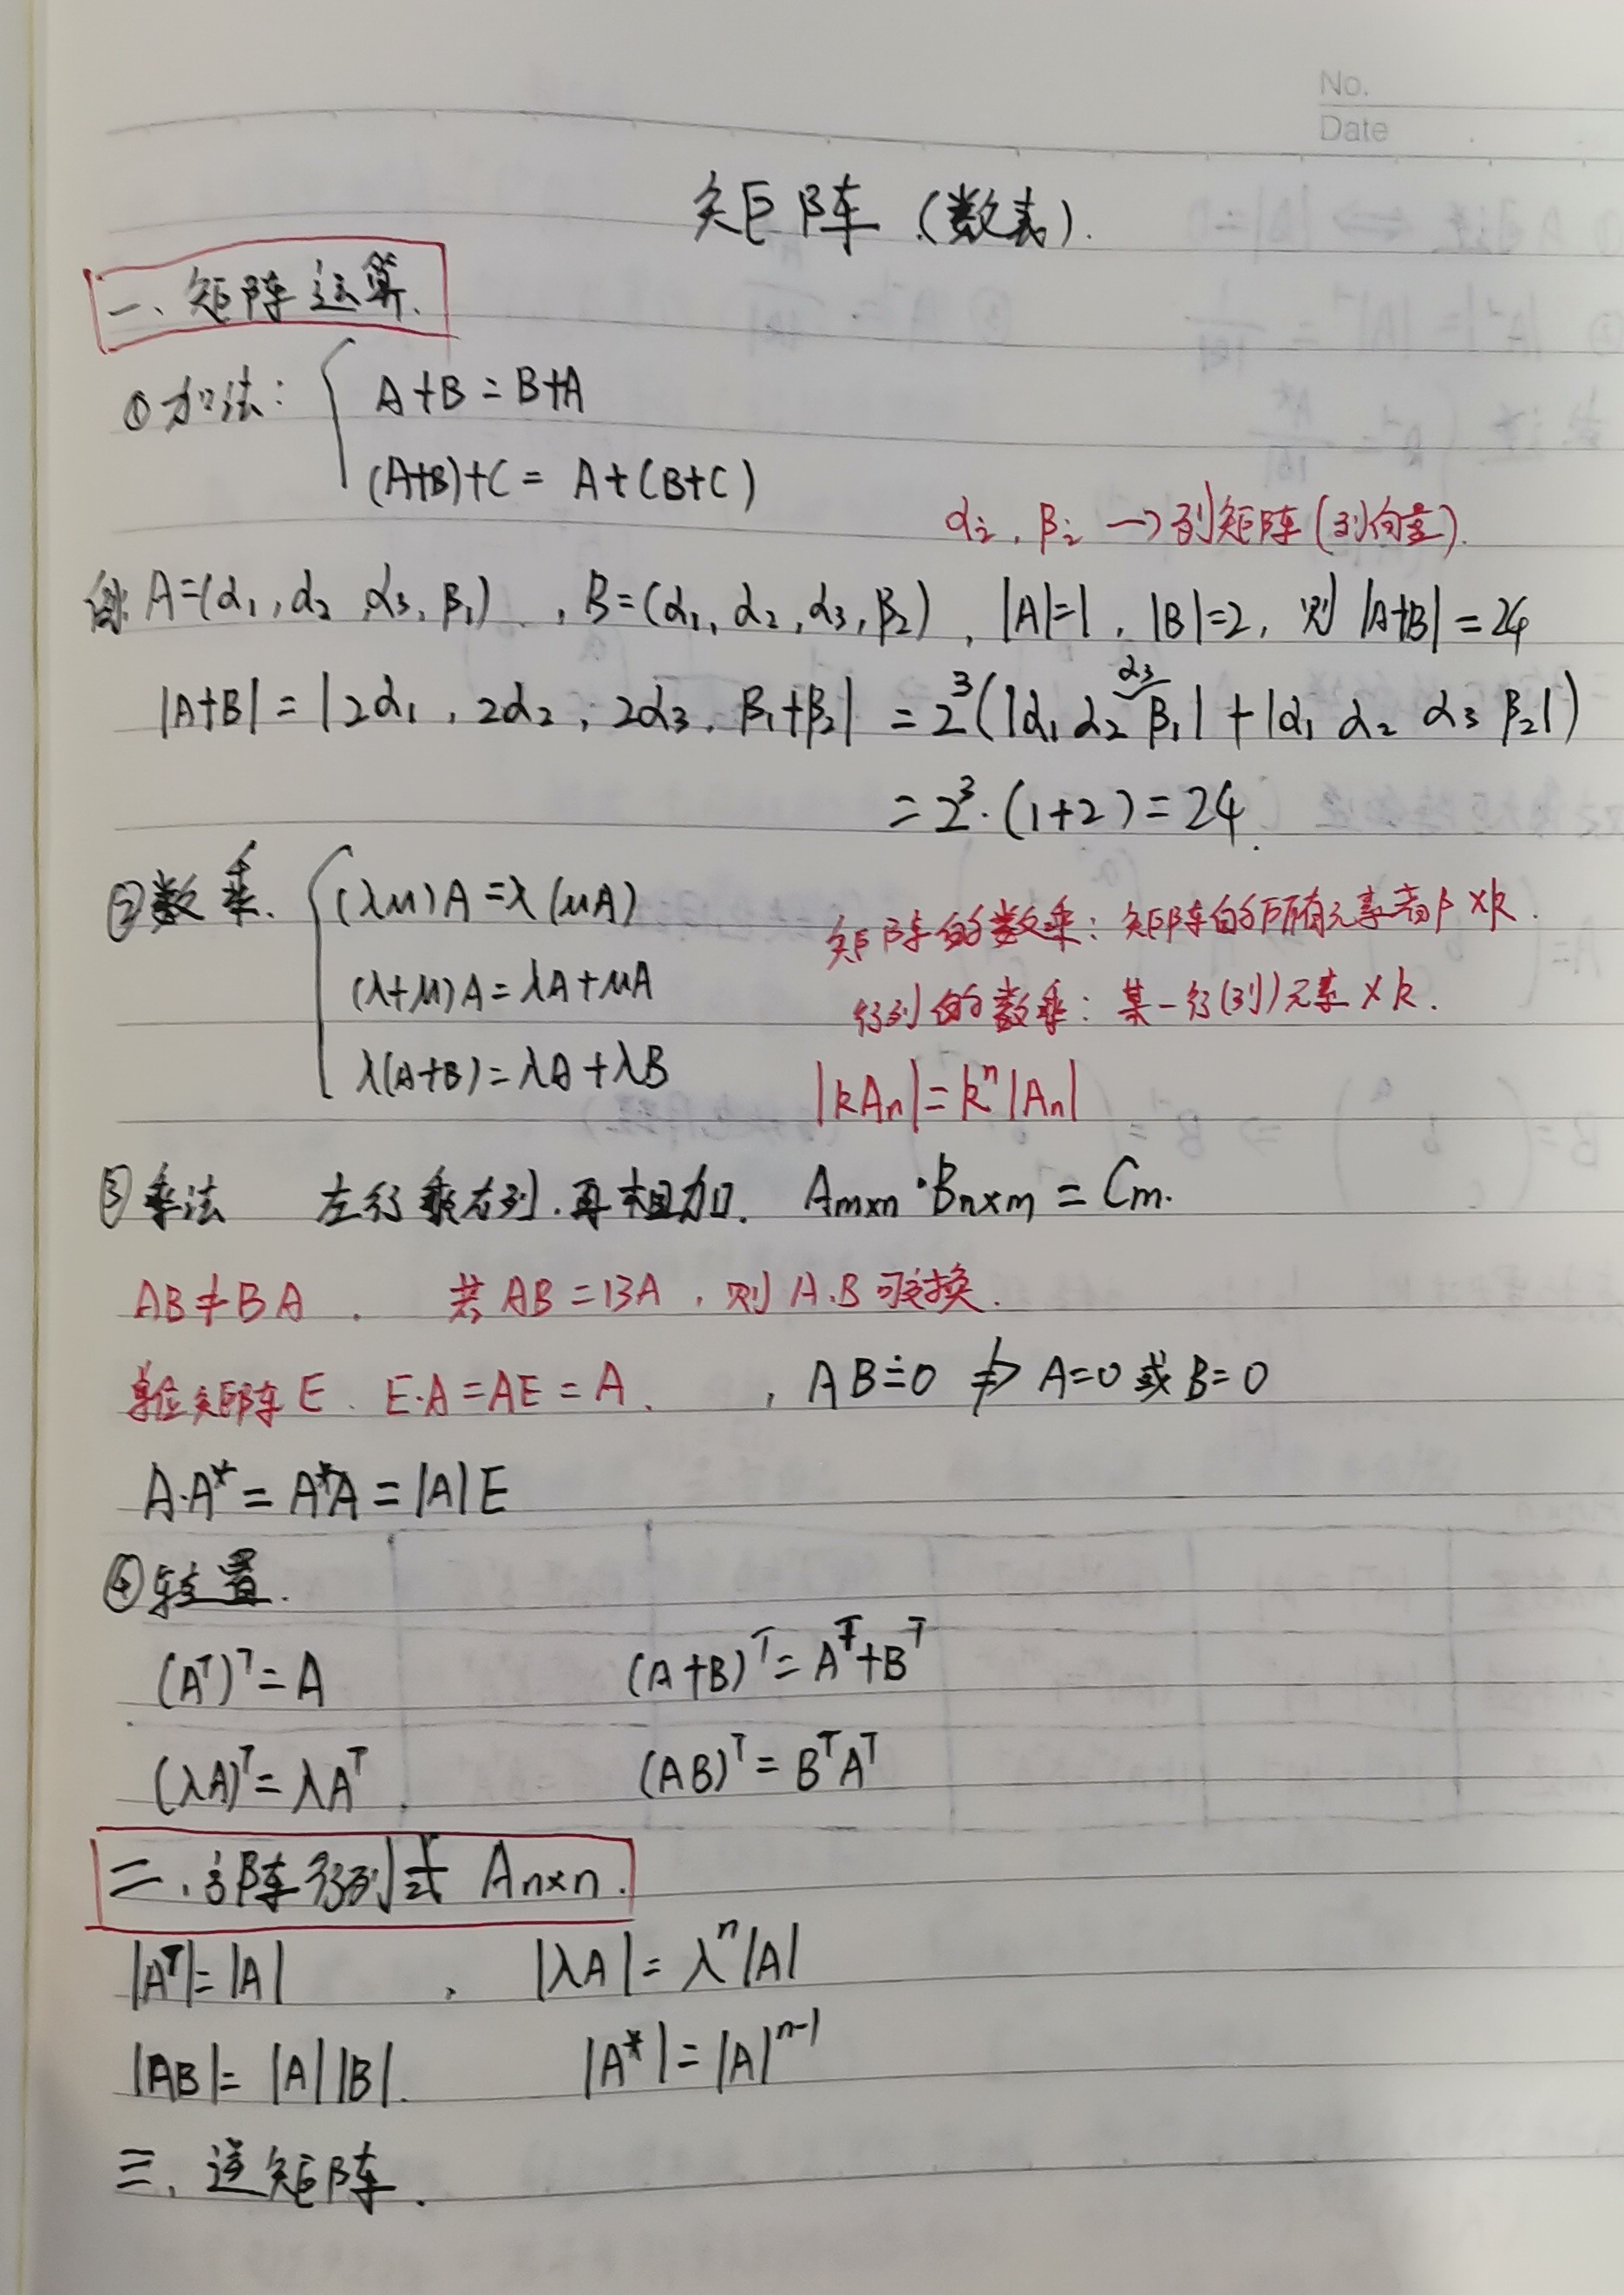 No.
Date
矩阵(数表).
一、矩阵运算.
①加法: { A+B=B+A
(A+B)+C= A+(B+C)
αi, βi → 列矩阵(列向量).
例: A=(α1, α2, α3, β1), B=(α1, α2, α3, β2), |A|=1, |B|=2, 则 |A+B|=24
|A+B| = |2α1, 2α2, 2α3, β1+β2| = 2³(|α1 α2 α3 β1| + |α1 α2 α3 β2|)
= 2³·(1+2)=24.
②数乘. { (λμ)A=λ(μA)
矩阵的数乘: 矩阵的所有元素都×k.
(λ+μ)A=λA+μA
行列的数乘: 某一行(列)元素×k.
λ(A+B)=λA+λB
|kAn|=kⁿ|An|
③乘法 左行乘右列.再相加. Am×n·Bn×m = Cm.
AB≠BA. 若AB=BA, 则A.B可交换.
单位矩阵E. E·A=AE=A. , AB=0 ⇏ A=0 或 B=0
A·A*=A*A=|A|E
④转置.
(Aᵀ)ᵀ=A (A+B)ᵀ=Aᵀ+Bᵀ
(λA)ᵀ=λAᵀ. (AB)ᵀ=BᵀAᵀ
二.方阵行列式 An×n.
|Aᵀ|=|A| , |λA|=λⁿ|A|
|AB|=|A||B|. |A*|=|A|ⁿ⁻¹
三.逆矩阵.